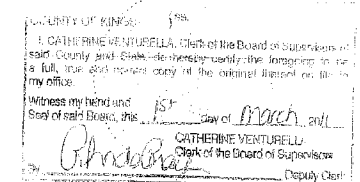 COUNTY OF KINGS ss.
I, CATHERINE VENTURELLA, Clerk of the Board of Supervisors of
said County and State do hereby certify the foregoing to be
a full, true and correct copy of the original thereof on file in
my office.
Witness my hand and
Seal of said Board, this 1st day of March 2011
CATHERINE VENTURELLA
Clerk of the Board of Supervisors
By Deputy Clerk